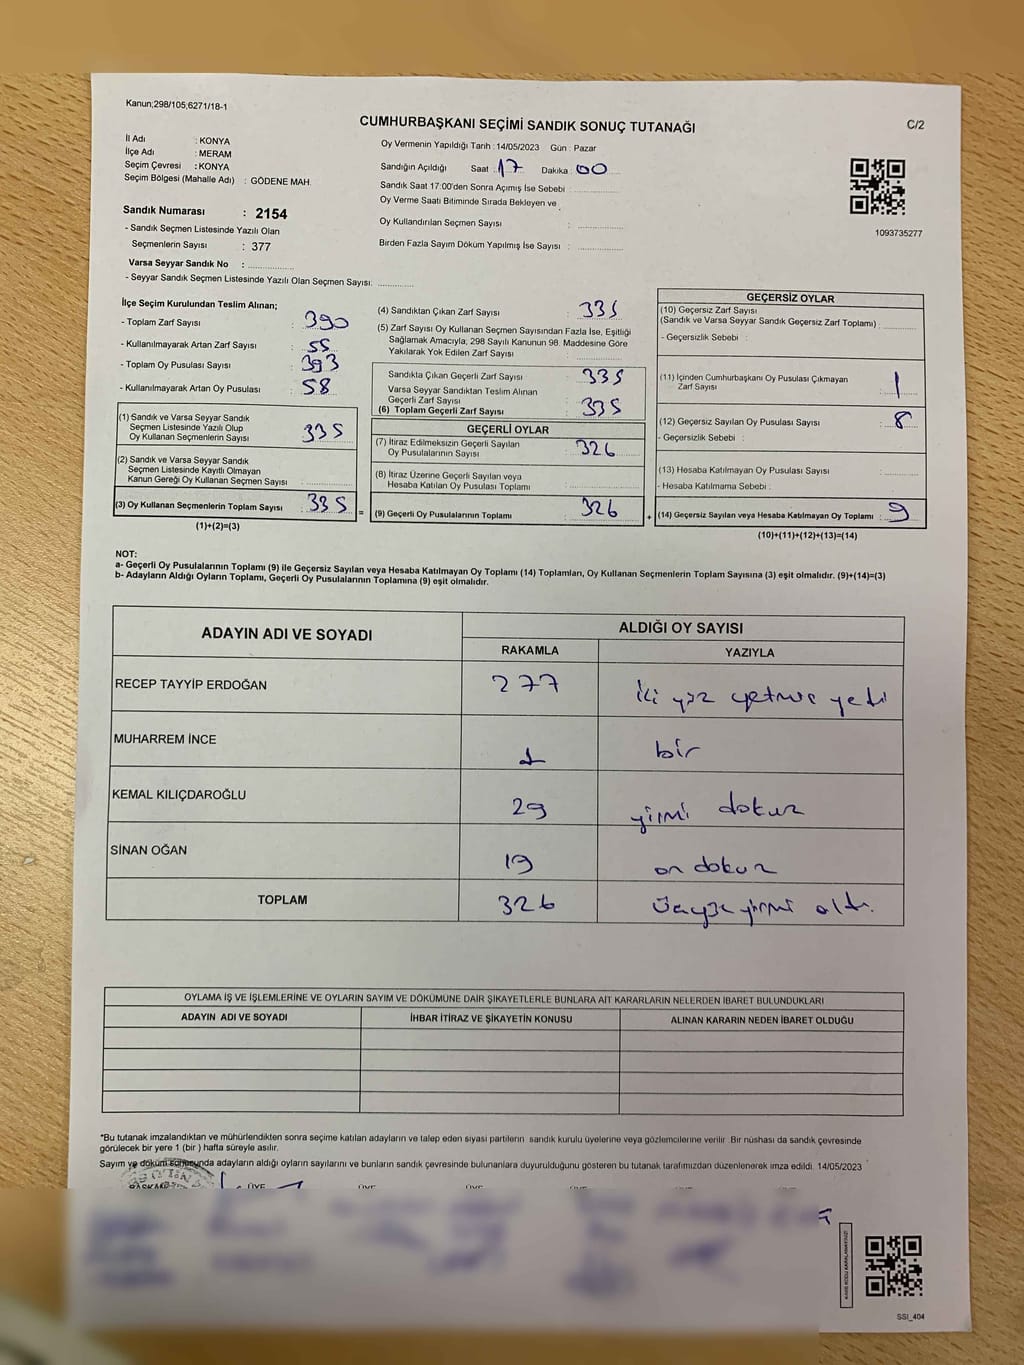 Kanun;298/105;6271/18-1
CUMHURBAŞKANI SEÇİMİ SANDIK SONUÇ TUTANAĞI
C/2
İl Adı : KONYA
İlçe Adı : MERAM
Seçim Çevresi : KONYA
Seçim Bölgesi (Mahalle Adı) : GÖDENE MAH.
Oy Vermenin Yapıldığı Tarih : 14/05/2023 Gün : Pazar
Sandığın Açıldığı Saat : 17 Dakika : 00
Sandık Saat 17:00'den Sonra Açımış İse Sebebi :
Oy Verme Saati Bitiminde Sırada Bekleyen ve
Oy Kullandırılan Seçmen Sayısı :
Birden Fazla Sayım Döküm Yapılmış İse Sayısı :
1093735277
Sandık Numarası : 2154
- Sandık Seçmen Listesinde Yazılı Olan
Seçmenlerin Sayısı : 377
Varsa Seyyar Sandık No :
- Seyyar Sandık Seçmen Listesinde Yazılı Olan Seçmen Sayısı:
İlçe Seçim Kurulundan Teslim Alınan;
- Toplam Zarf Sayısı : 390
- Kullanılmayarak Artan Zarf Sayısı : 55
- Toplam Oy Pusulası Sayısı : 393
- Kullanılmayarak Artan Oy Pusulası : 58
(1) Sandık ve Varsa Seyyar Sandık
Seçmen Listesinde Yazılı Olup
Oy Kullanan Seçmenlerin Sayısı : 335
(2) Sandık ve Varsa Seyyar Sandık
Seçmen Listesinde Kayıtlı Olmayan
Kanun Gereği Oy Kullanan Seçmen Sayısı :
(3) Oy Kullanan Seçmenlerin Toplam Sayısı : 335
(1)+(2)=(3)
(4) Sandıktan Çıkan Zarf Sayısı : 335
(5) Zarf Sayısı Oy Kullanan Seçmen Sayısından Fazla İse, Eşitliği
Sağlamak Amacıyla, 298 Sayılı Kanunun 98. Maddesine Göre
Yakılarak Yok Edilen Zarf Sayısı :
Sandıkta Çıkan Geçerli Zarf Sayısı : 335
Varsa Seyyar Sandıktan Teslim Alınan
Geçerli Zarf Sayısı :
(6) Toplam Geçerli Zarf Sayısı : 335
GEÇERLİ OYLAR
(7) İtiraz Edilmeksizin Geçerli Sayılan
Oy Pusulalarının Sayısı : 326
(8) İtiraz Üzerine Geçerli Sayılan veya
Hesaba Katılan Oy Pusulası Toplamı :
= (9) Geçerli Oy Pusulalarının Toplamı : 326
GEÇERSİZ OYLAR
(10) Geçersiz Zarf Sayısı
(Sandık ve Varsa Seyyar Sandık Geçersiz Zarf Toplamı) :
- Geçersizlik Sebebi :
(11) İçinden Cumhurbaşkanı Oy Pusulası Çıkmayan
Zarf Sayısı : 1
(12) Geçersiz Sayılan Oy Pusulası Sayısı : 8
- Geçersizlik Sebebi :
(13) Hesaba Katılmayan Oy Pusulası Sayısı :
- Hesaba Katılmama Sebebi :
+ (14) Geçersiz Sayılan veya Hesaba Katılmayan Oy Toplamı : 9
(10)+(11)+(12)+(13)=(14)
NOT:
a- Geçerli Oy Pusulalarının Toplamı (9) ile Geçersiz Sayılan veya Hesaba Katılmayan Oy Toplamı (14) Toplamları, Oy Kullanan Seçmenlerin Toplam Sayısına (3) eşit olmalıdır. (9)+(14)=(3)
b- Adayların Aldığı Oyların Toplamı, Geçerli Oy Pusulalarının Toplamına (9) eşit olmalıdır.
ADAYIN ADI VE SOYADI ALDIĞI OY SAYISI
RAKAMLA YAZIYLA
RECEP TAYYİP ERDOĞAN 277 iki yüz yetmiş yedi
MUHARREM İNCE 1 bir
KEMAL KILIÇDAROĞLU 29 yirmi dokuz
SİNAN OĞAN 19 on dokuz
TOPLAM 326 üçyüzyirmi altı.
OYLAMA İŞ VE İŞLEMLERİNE VE OYLARIN SAYIM VE DÖKÜMÜNE DAİR ŞİKAYETLERLE BUNLARA AİT KARARLARIN NELERDEN İBARET BULUNDUKLARI
ADAYIN ADI VE SOYADI İHBAR İTİRAZ VE ŞİKAYETİN KONUSU ALINAN KARARIN NEDEN İBARET OLDUĞU
*Bu tutanak imzalandıktan ve mühürlendikten sonra seçime katılan adayların ve talep eden siyasi partilerin sandık kurulu üyelerine veya gözlemcilerine verilir. Bir nüshası da sandık çevresinde
görülecek bir yere 1 (bir ) hafta süreyle asılır.
Sayım ve döküm sonucunda adayların aldığı oyların sayılarını ve bunların sandık çevresinde bulunanlara duyurulduğunu gösteren bu tutanak tarafımızdan düzenlenerek imza edildi. 14/05/2023
SSI_404